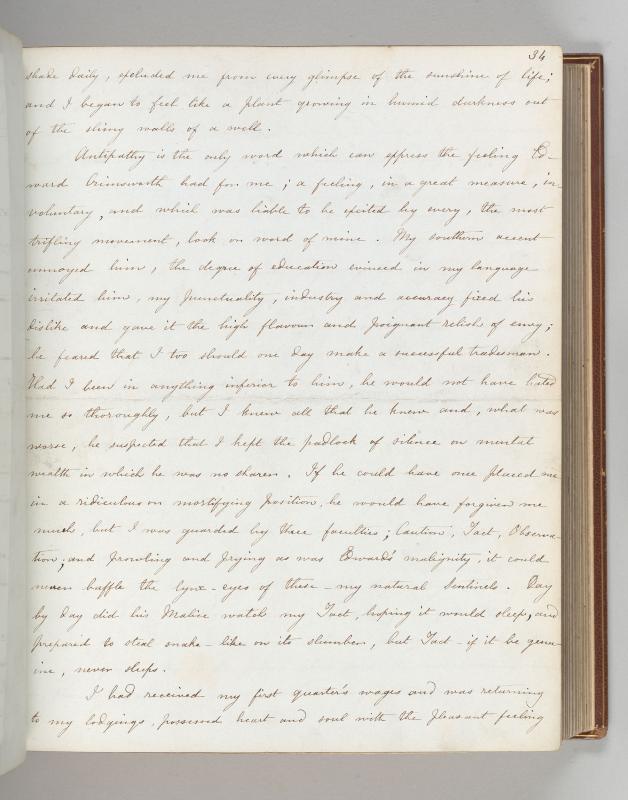 34
shade daily, excluded me from every glimpse of the sunshine of life;
and I began to feel like a plant growing in humid darkness out
of the slimy walls of a well.
Antipathy is the only word which can express the feeling Ed-
ward Crimsworth had for me; a feeling, in a great measure, in-
voluntary, and which was liable to be excited by every, the most
trifling movement, look or word of mine. My southern accent
annoyed him, the degree of education evinced in my language
irritated him, my punctuality, industry and accuracy fixed his
dislike and gave it the high flavour and poignant relish of envy;
he feared that I too should one day make a successful tradesman.
Had I been in anything inferior to him, he would not have hated
me so thoroughly, but I knew all that he knew and, what was
worse, he suspected that I kept the padlock of silence on mental
wealth in which he was no sharer. If he could have once placed me
in a ridiculous or mortifying position, he would have forgiven me
much, but I was guarded by three faculties; Caution, Tact, Observa-
tion; and prowling and prying as was Edward's malignity, it could
never baffle the lynx-eyes of these - my natural Sentinels. Day
by day did his Malice watch my Tact, hoping it would sleep, and
prepared to steal snake-like on its slumber, but Tact - if it be genu-
ine, never sleeps.
I had received my first quarter's wages and was returning
to my lodgings, possessed heart and soul with the pleasant feeling